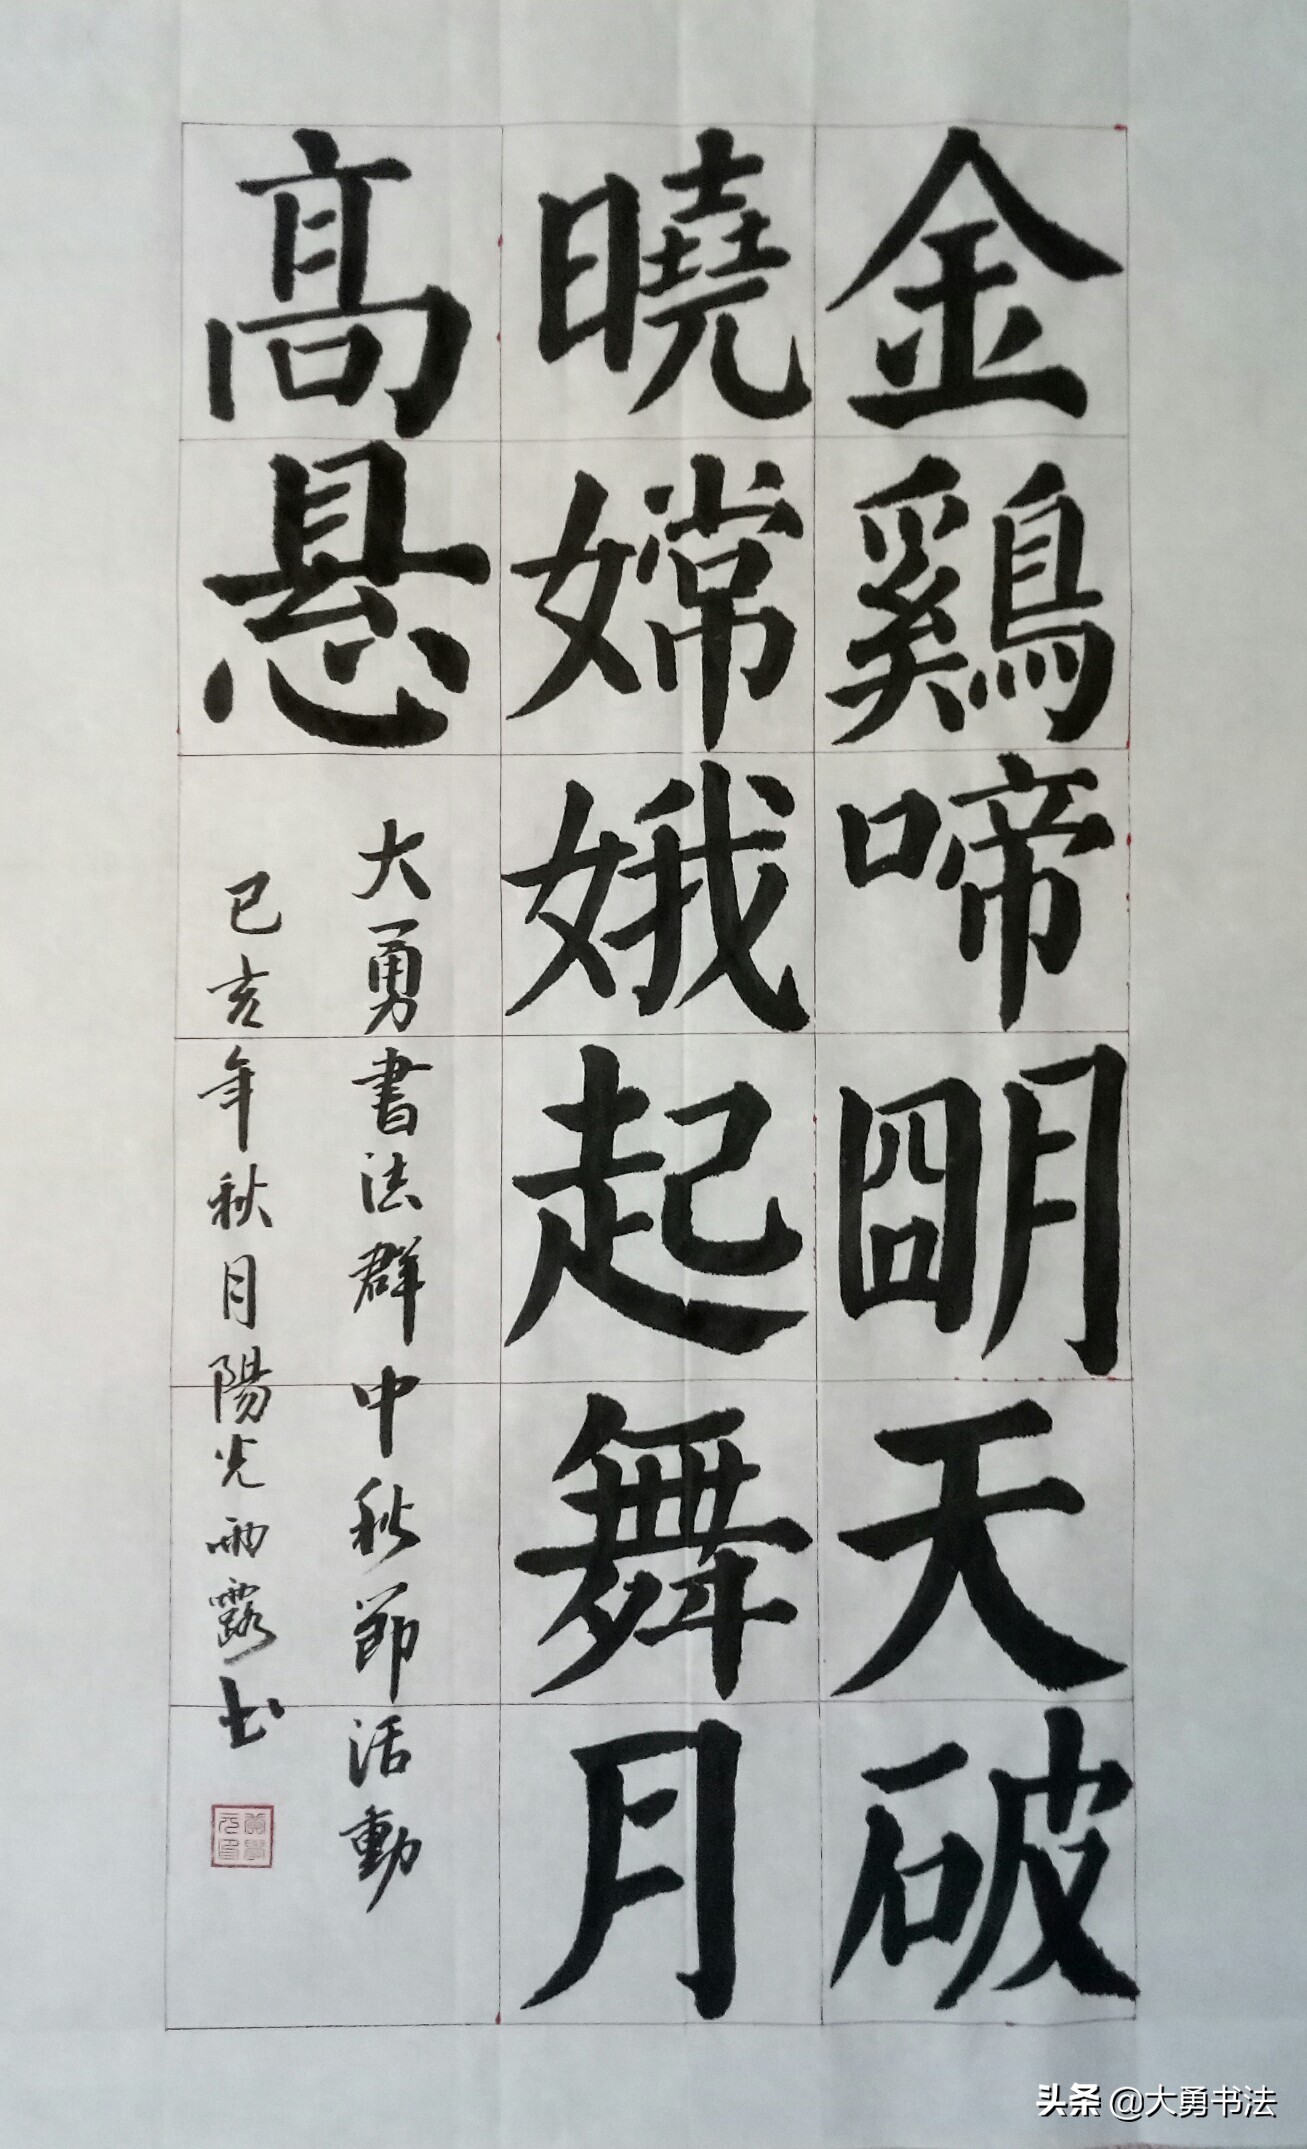 金鷄啼朙天破
曉嫦娥起舞月
髙悬
大勇書法群中秋節活動
己亥年秋月陽光雨露书
头条 @大勇书法